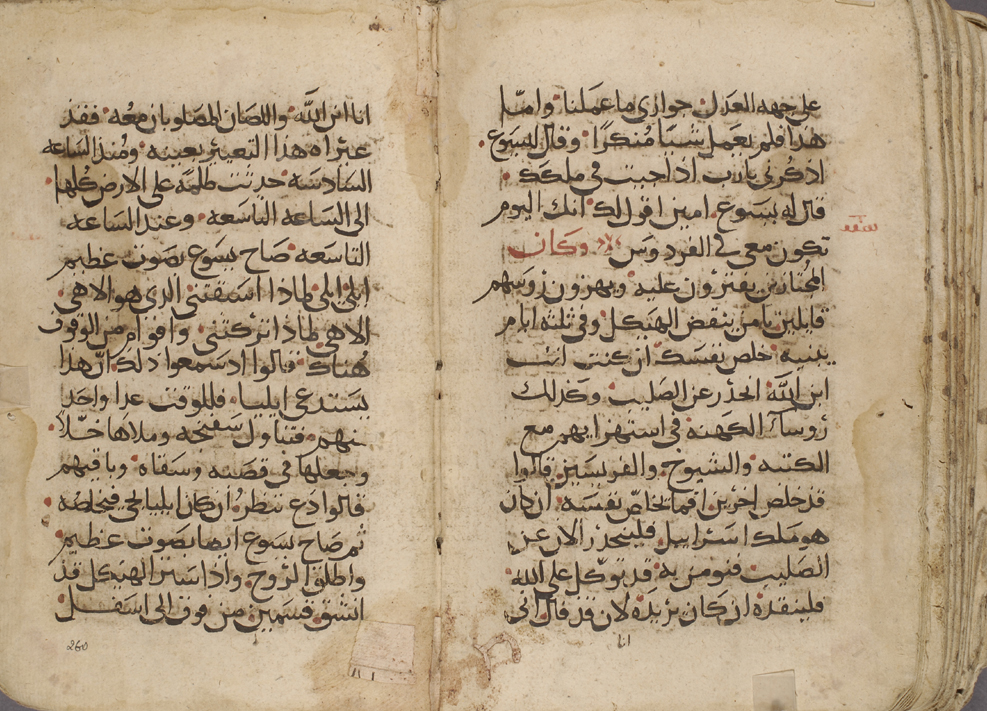 على جهه العدل جوازي ما عملنا وامّا
هذا فلم يعمل شيا مُنكرًا وقال ليسوع
اذكرني يا رب اذا جيت في ملكك
قال له يسوع امين اقول لك انك اليوم
تكون معي في الفردوس وكان
المجتازين يفترون عليه ويهزون رؤسهم
قايلين يا من ينقض الهيكل وفي ثلثه ايام
يبنيه خلص نفسك ان كنت انت
ابن اللّه انحذر عن الصليب وكذلك
رؤسآ الكهنه في استهزايهم مع
الكتبه والشيوخ والفريسين قالوا
قد خلص اخرين افما يخلّص نفسه ان كان
هو ملك اسراييل فلينحذر الان عن
الصليب فنومن به قد توكّل على اللّه
فلينقذه ان كان يريده لان قد قال اني
انا
انا ابن اللّه واللصان المصلوبان معُه فقد
عيّراه هذا التعيير بعينه ومُنذ الساعه
السادسه حدثت ظلمَه على الارض كُلها
الى الساعه التاسعه وعند الساعه
التاسعه صاح يسوع بصوت عظيم
ايلي ايلي لماذا اسبقتني الذي هو الاهي
الاهي لماذا تركتني واقوام من الوقوف
هُناك قالوا اذ سمعوا ذلك انّ هذا
يستدعي ايليا فللوقت عدا واحد
منهم فتناول سفنجه وملاها خلّاً
وجعلها في قصبه وسقاه وباقيهم
قالوا دع ننظر ان كان ايليا يجي فيخلصُه
ثم صاح يسوع ايضا بصوت عظيم
واطلق الروح واذا ستر الهيكل قد
انشق قسمين من فوق الى اسفل
260